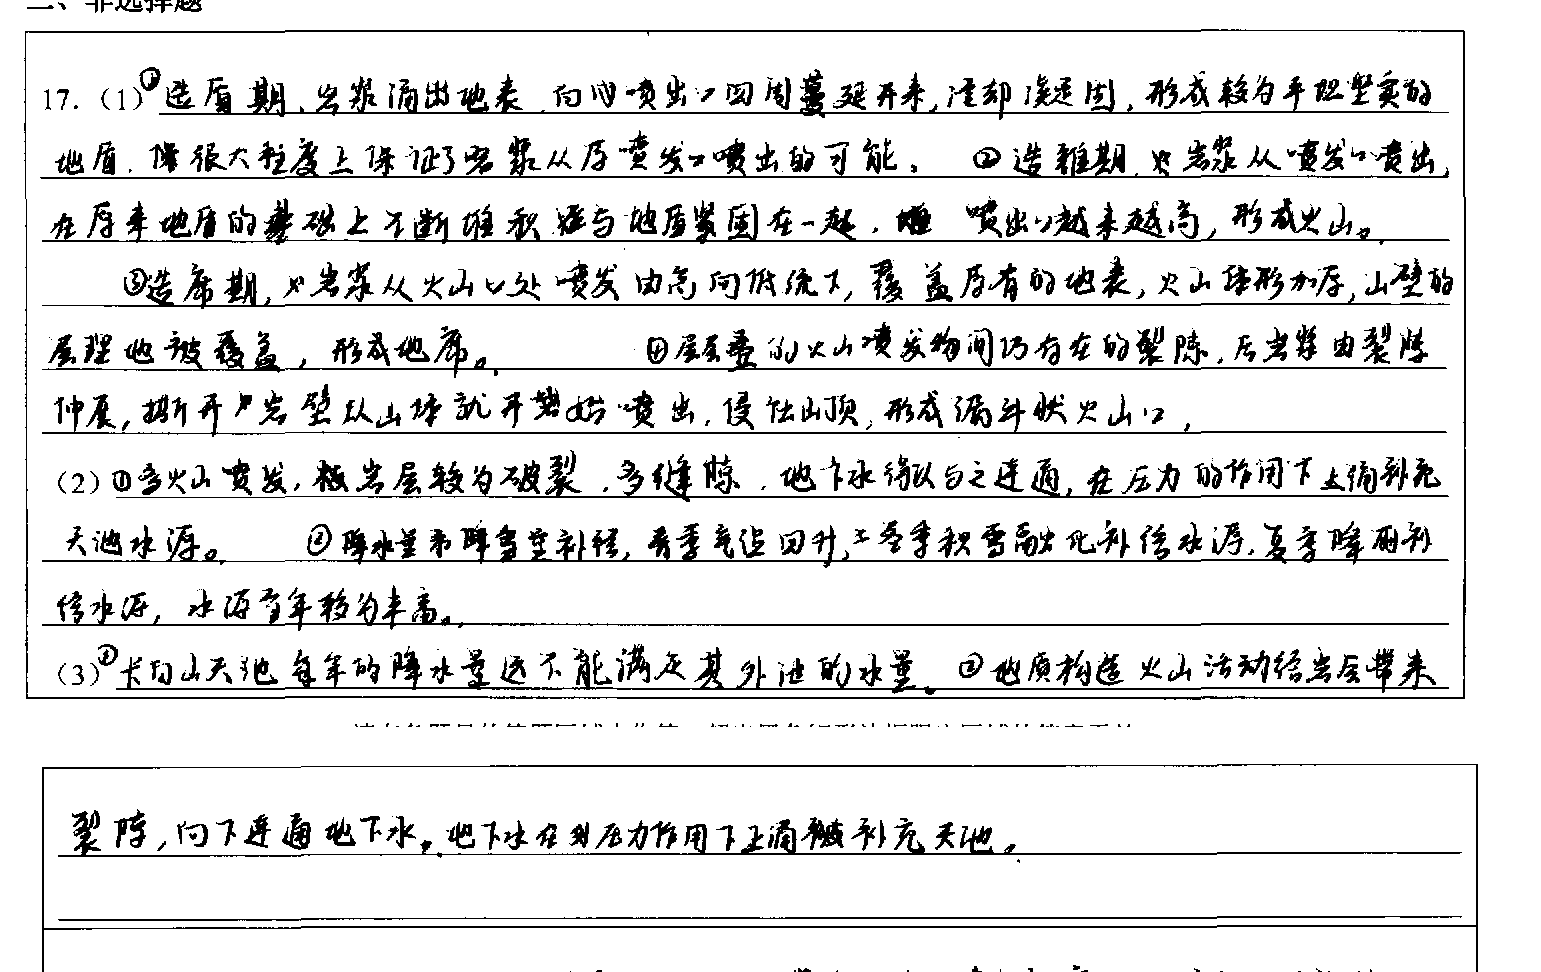 二、非选择题
17.（1）①造盾期，岩浆涌出地表，向喷出口四周蔓延开来，冷却凝固，形成较为平坦坚实的
地盾，很大程度上保证了岩浆从原喷发口喷出的可能。 ②造锥期，岩浆从喷发口喷出，
在原来地盾的基础上不断堆积与地盾紧固在一起，喷出口越来越高，形成火山。
③造席期，岩浆从火山口处喷发由高向低流下，覆盖原有的地表，火山锥形加厚，山壁的
层理也被覆盖，形成地席。 ④层层叠的火山喷发物间仍存在的裂隙，后岩浆由裂隙
伸展，撕开岩壁从山体就开始喷出，侵蚀山顶，形成漏斗状火山口，
（2）①多火山喷发，岩层较为破裂，多缝隙，地下水得以与之连通，在压力的作用下上涌补充
天池水源。 ②降水量和降雪量补给，春季气温回升，冬季积雪融化补给水源，夏季降雨补
给水源，水源全年较为丰富。
（3）①长白山天池每年的降水量远不能满足其外泄的水量。②地质构造火山活动给岩层带来
裂隙，向下连通地下水。地下水在压力作用下上涌补充天池。